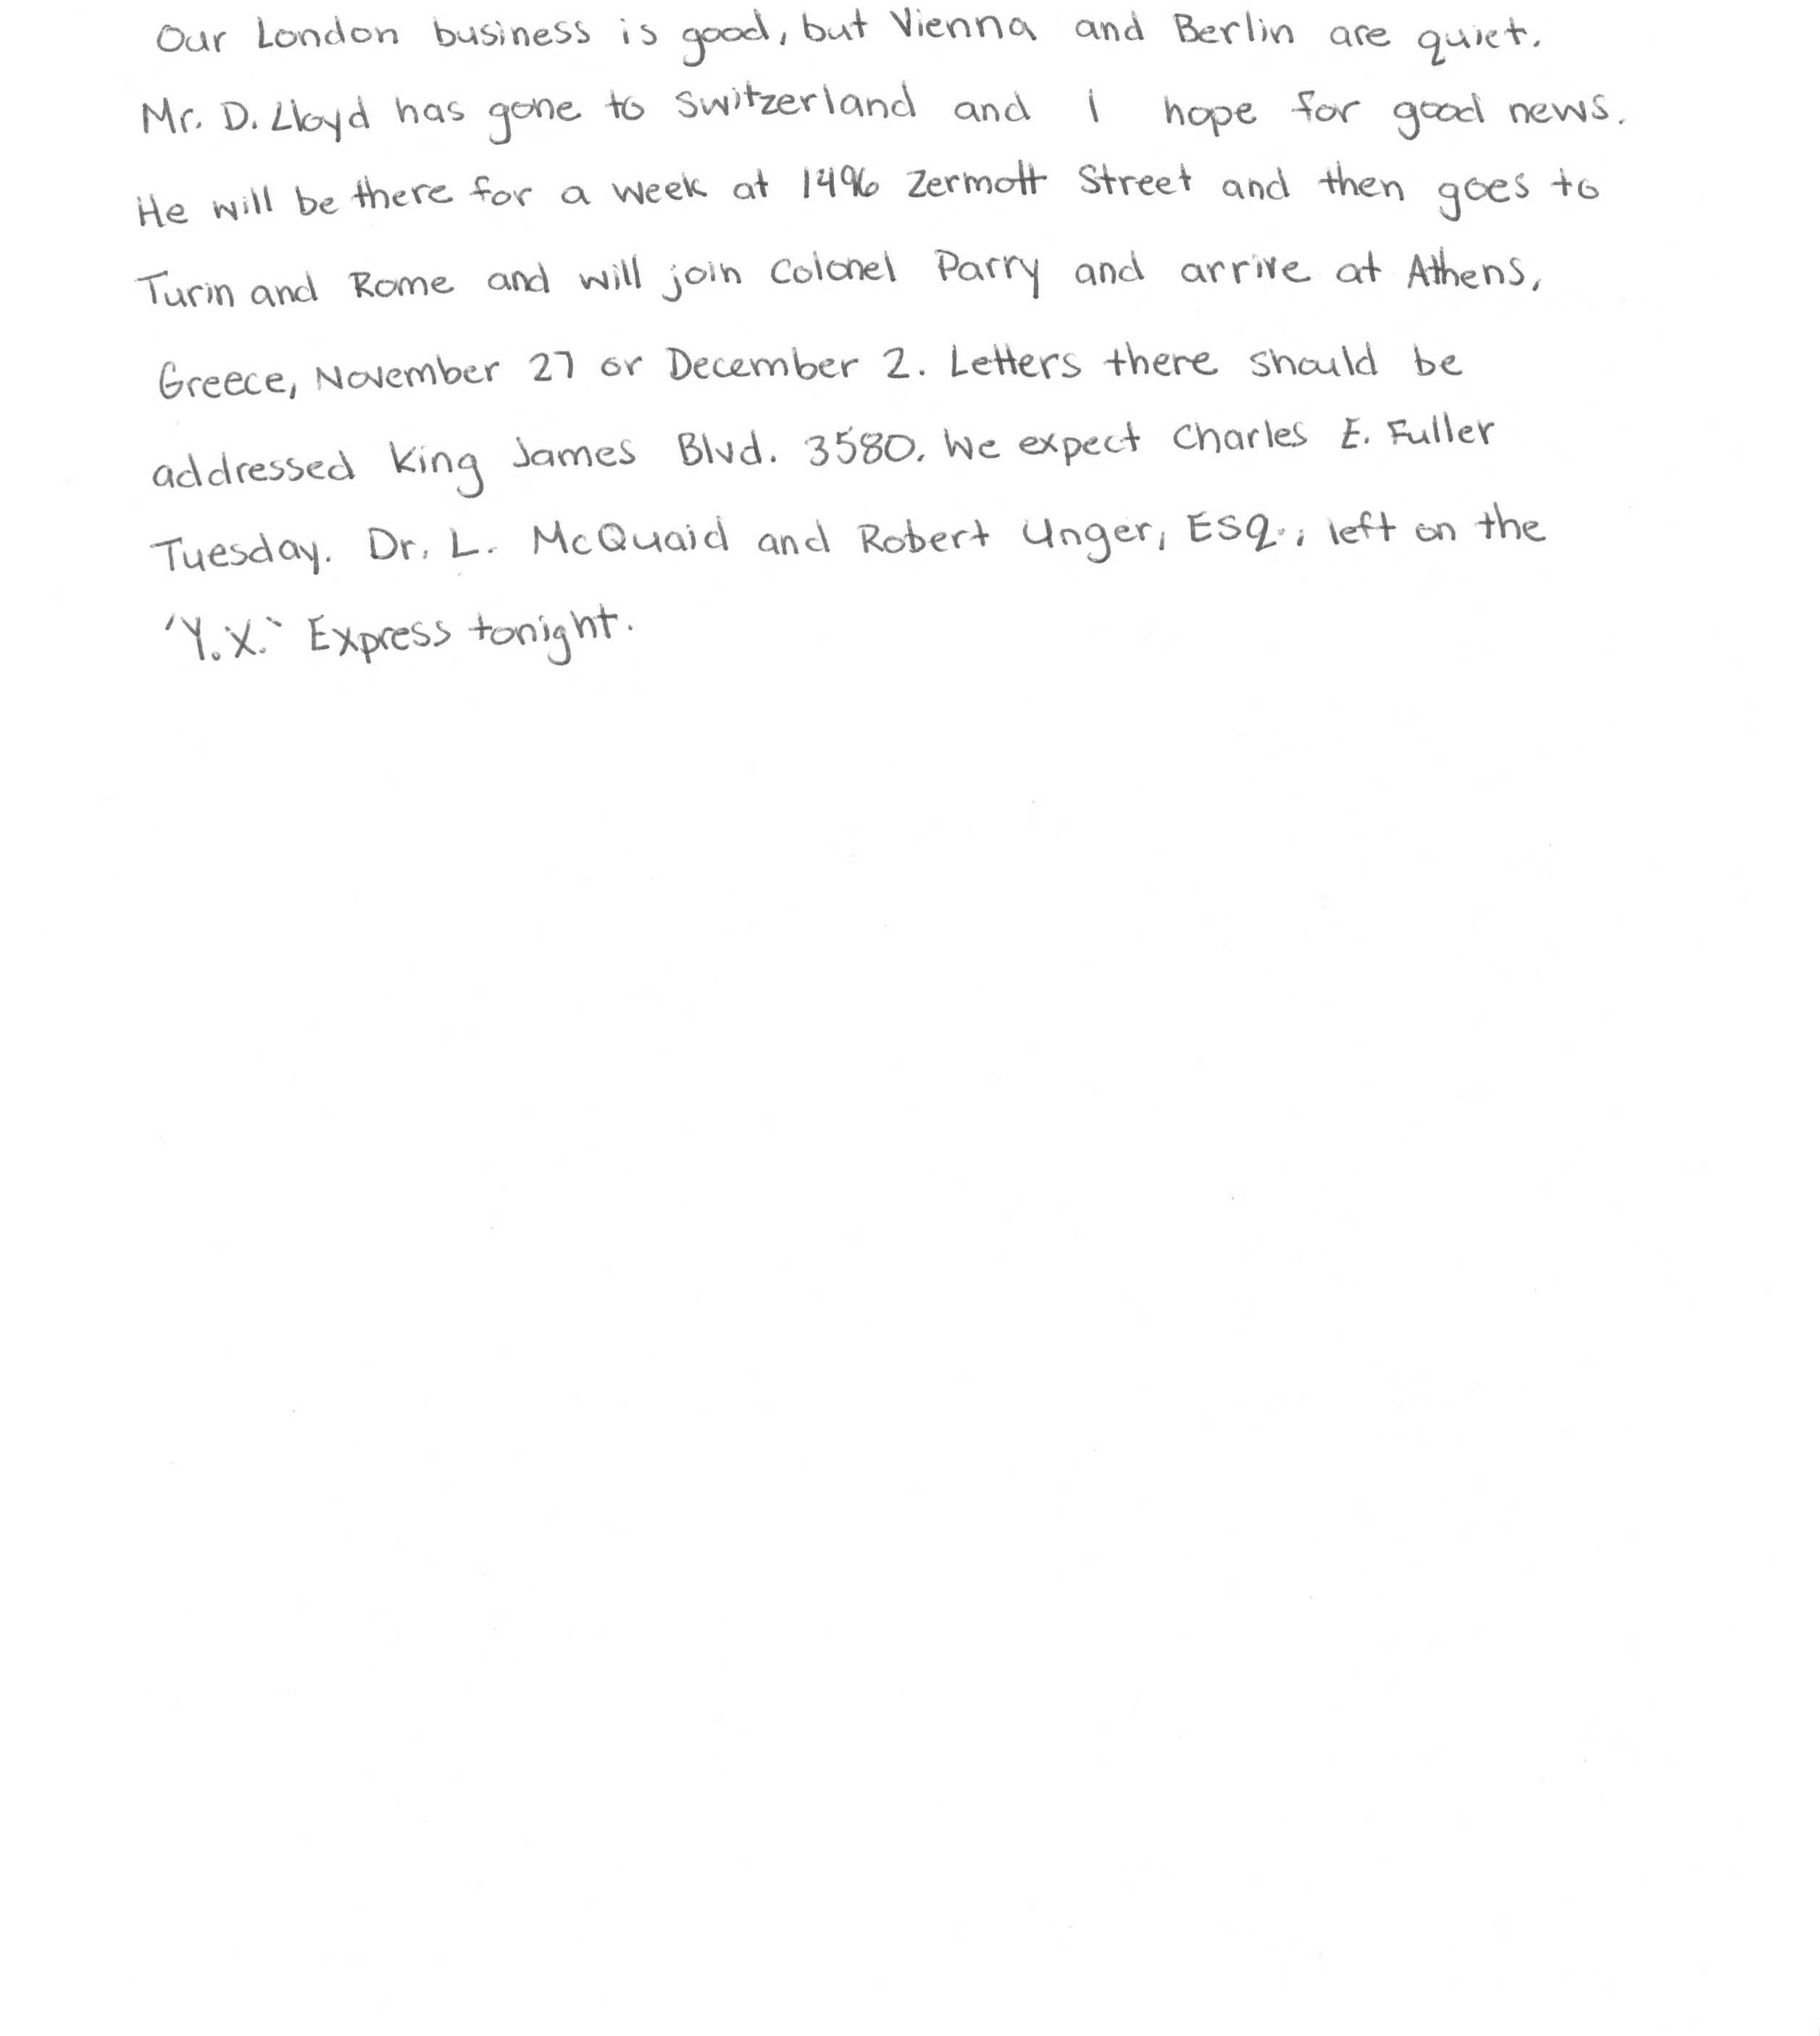 Our London business is good, but Vienna and Berlin are quiet.
Mr. D. Lloyd has gone to Switzerland and I hope for good news.
He will be there for a week at 1496 Zermott Street and then goes to
Turin and Rome and will join Colonel Parry and arrive at Athens,
Greece, November 27 or December 2. Letters there should be
addressed King James Blvd. 3580. We expect Charles E. Fuller
Tuesday. Dr. L. McQuaid and Robert Unger, ESQ., left on the
"Y.X." Express tonight.